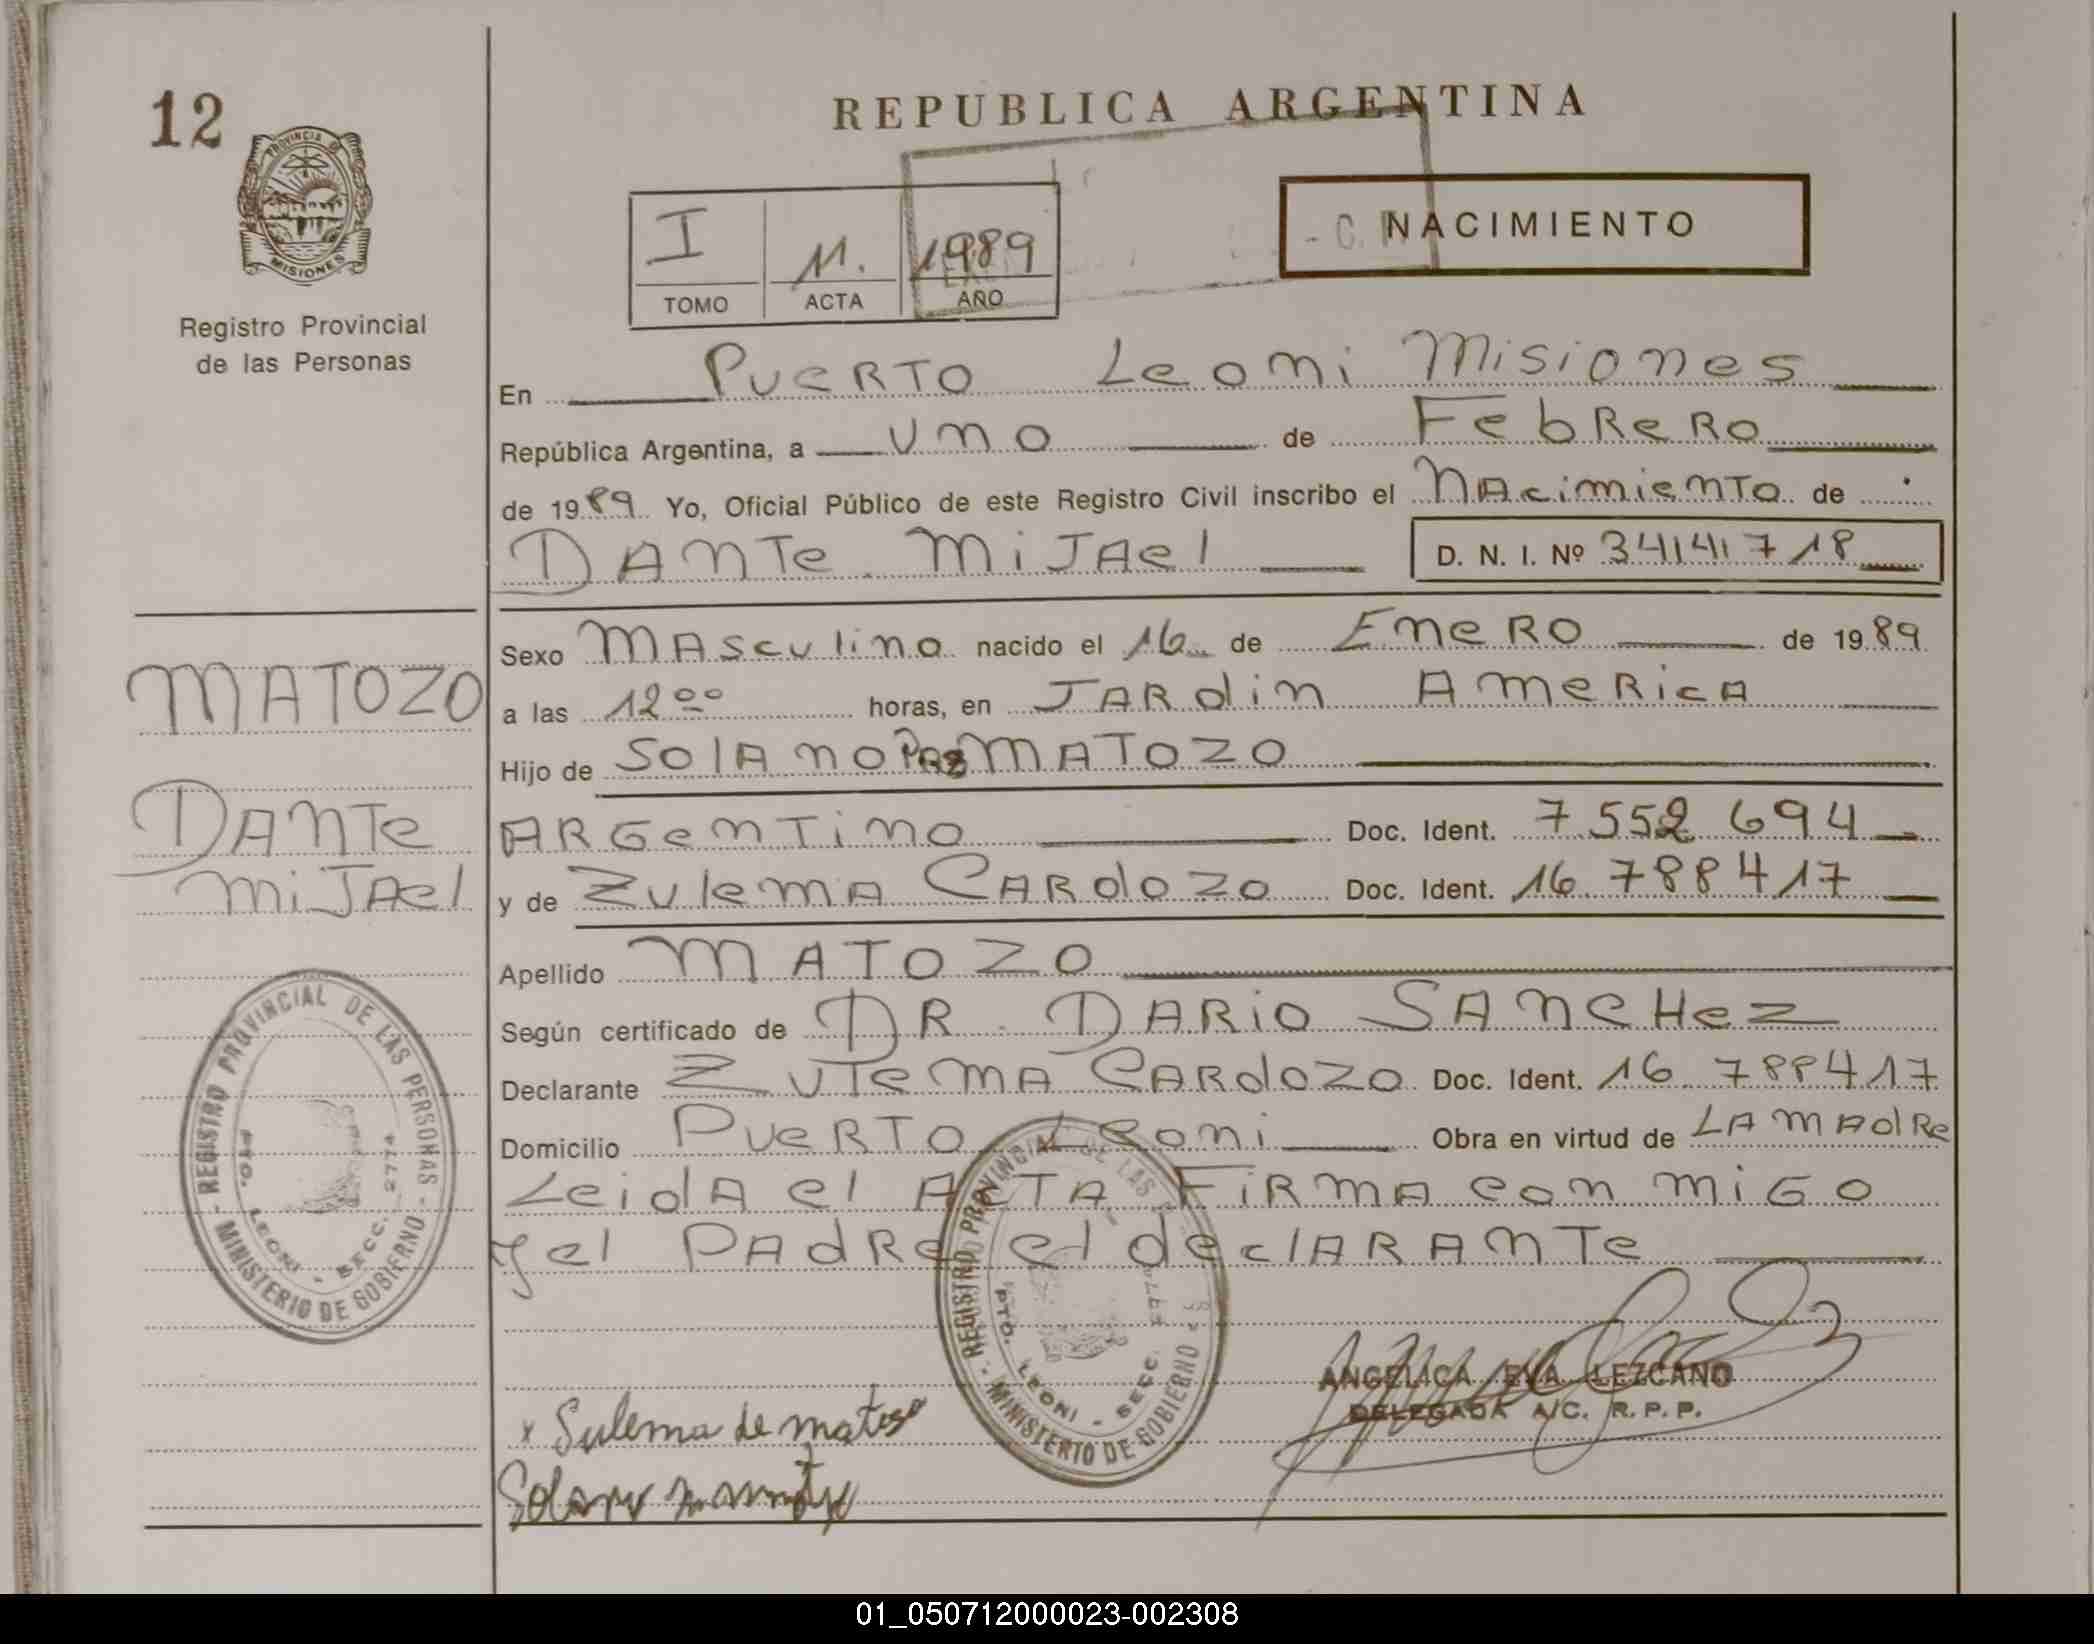 12
PROVINCIA DE
MISIONES
Registro Provincial
de las Personas
REPUBLICA ARGENTINA
I 11. 1989
TOMO ACTA AÑO
NACIMIENTO
En PUERTO LEONI MISIONES
República Argentina, a UNO de FEBRERO
de 1989 Yo, Oficial Público de este Registro Civil inscribo el NACIMIENTO de
DANTE MIJAEL D. N. I. Nº 34141718
Sexo MASCULINO nacido el 16 de ENERO de 1989
a las 12 00 horas, en JARDIN AMERICA
Hijo de SOLANO PAZ MATOZO
ARGENTINO Doc. Ident. 7 552 694
y de ZULEMA CARDOZO Doc. Ident. 16 788417
Apellido MATOZO
Según certificado de DR. DARIO SANCHEZ
Declarante ZULEMA CARDOZO Doc. Ident. 16 788417
Domicilio PUERTO LEONI Obra en virtud de LA MADRE
LEIDA EL ACTA FIRMA CON MIGO
y el PADRE el declARANTE
MATOZO
DANTE
MIJAEL
REGISTRO PROVINCIAL DE LAS PERSONAS
- MINISTERIO DE GOBIERNO -
PTO. LEONI - SECC. 2774
REGISTRO PROVINCIAL DE LAS
- MINISTERIO DE GOBIERNO -
PTO. LEONI - SECC.
ANGELICA EVA LEZCANO
DELEGADA A/C. R.P.P.
x Sulema de matoso
Solano
01_050712000023-002308